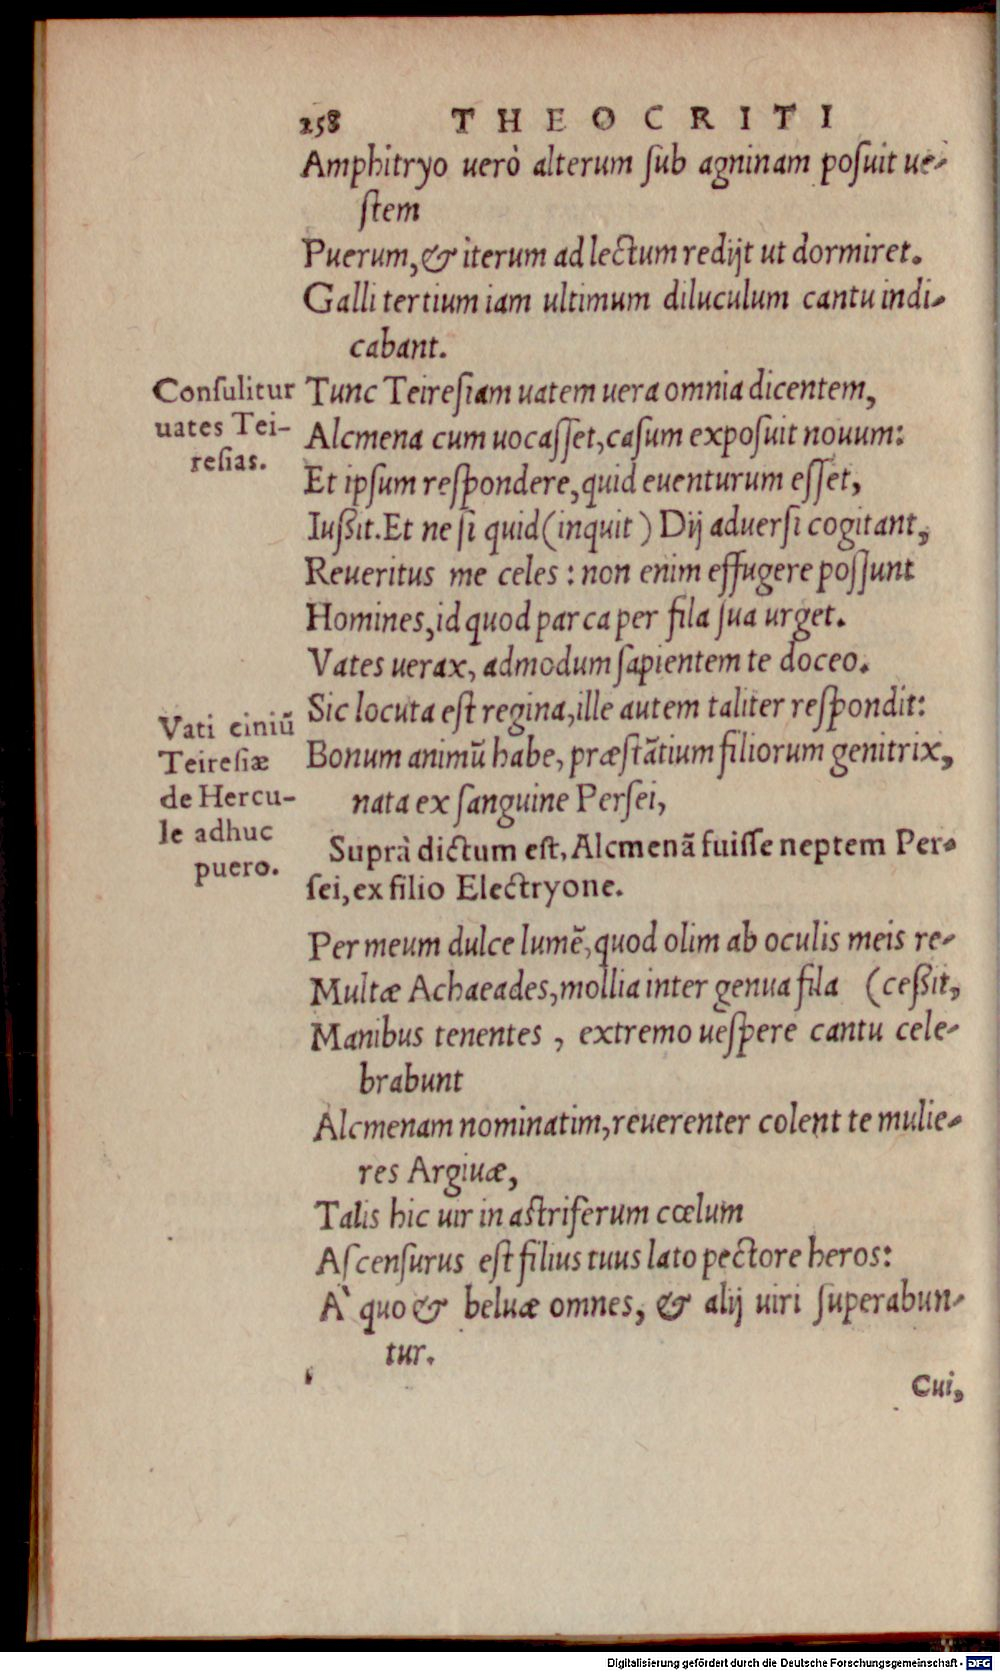 258 THEOCRITI
Amphitryo uerò alterum ſub agninam poſuit ue-
ſtem
Puerum, & iterum ad lectum redijt ut dormiret.
Galli tertium iam ultimum diluculum cantu indi-
cabant.
Conſulitur
uates Tei-
reſias.
Tunc Teireſiam uatem uera omnia dicentem,
Alcmena cum uocaſſet, caſum expoſuit nouum:
Et ipſum reſpondere, quid euenturum eſſet,
Iußit. Et ne ſi quid (inquit) Dij aduerſi cogitant,
Reueritus me celes: non enim effugere poſſunt
Homines, id quod parca per fila ſua urget.
Vates uerax, admodum ſapientem te doceo.
Vati ciniũ
Teireſiæ
de Hercu-
le adhuc
puero.
Sic locuta eſt regina, ille autem taliter reſpondit:
Bonum animũ habe, præſtãtium filiorum genitrix,
nata ex ſanguine Perſei,
Suprà dictum eſt, Alcmenã fuiſſe neptem Per-
ſei, ex filio Electryone.
Per meum dulce lumẽ, quod olim ab oculis meis re-
Multæ Achaeades, mollia inter genua fila (ceßit,
Manibus tenentes, extremo ueſpere cantu cele-
brabunt
Alcmenam nominatim, reuerenter colent te mulie-
res Argiuæ,
Talis hic uir in aſtriferum cœlum
Aſcenſurus eſt filius tuus lato pectore heros:
A` quo & beluæ omnes, & alij uiri ſuperabun-
tur.
Cui,
Digitalisierung gefördert durch die Deutsche Forschungsgemeinschaft - DFG